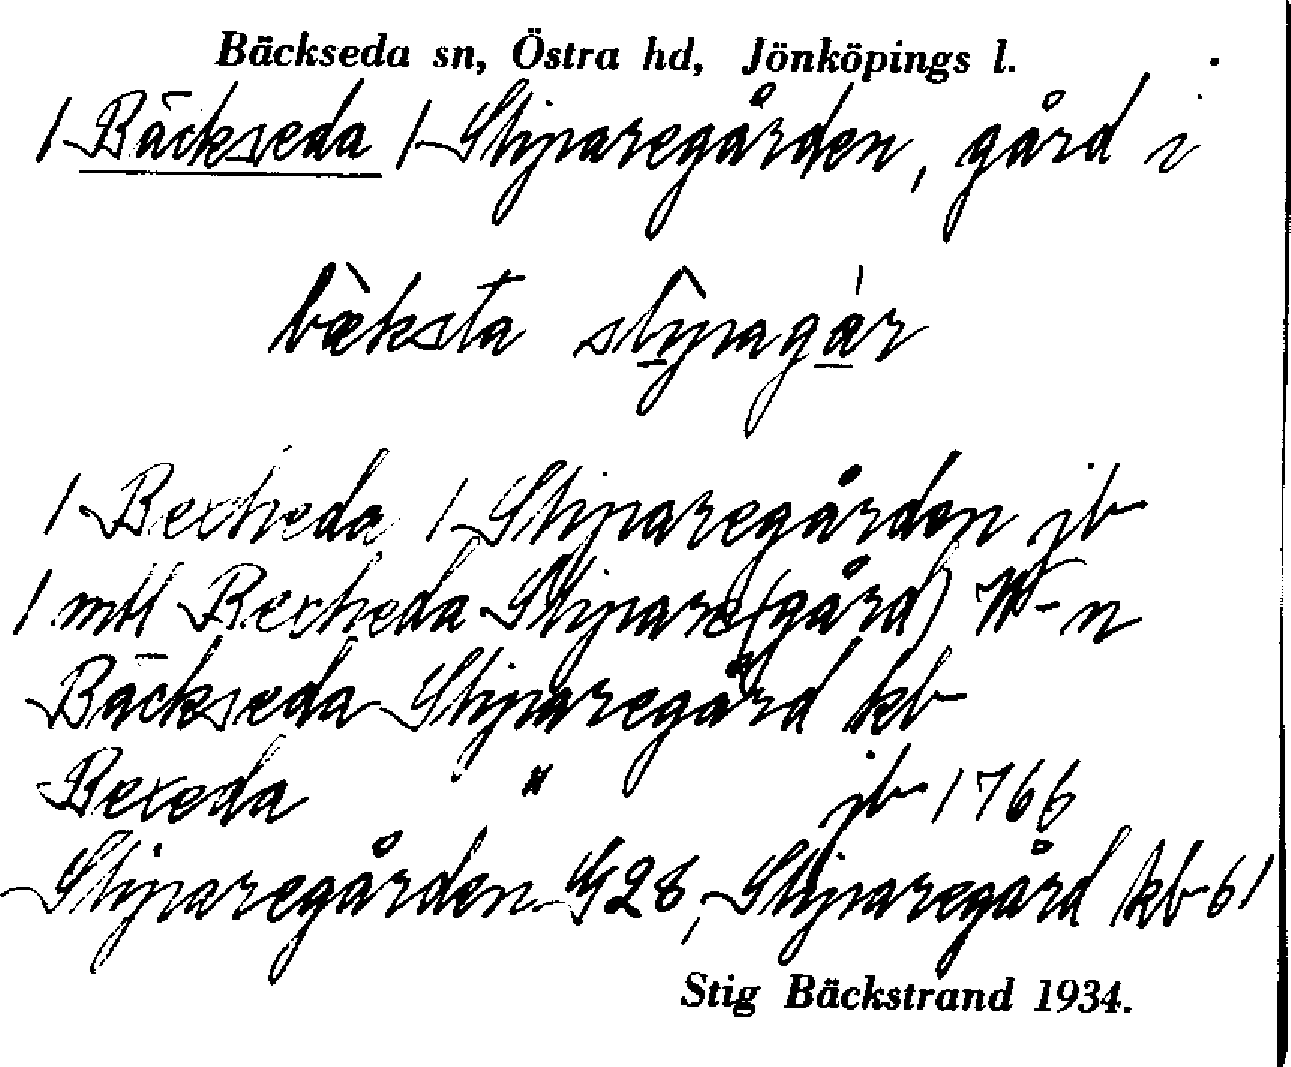 Bäckseda sn, Östra hd, Jönköpings l.
1 Bäckseda 1 Stiparegården, gård i
bæksta
1 Bexheda 1 Stiparegården jb
1 mtl Bexheda Stipare(gård) W-n
Bäckseda Stiparegård kb
Bexeda " jb 1766
Stiparegården G28, Stiparegård kb 61
Stig Bäckstrand 1934.